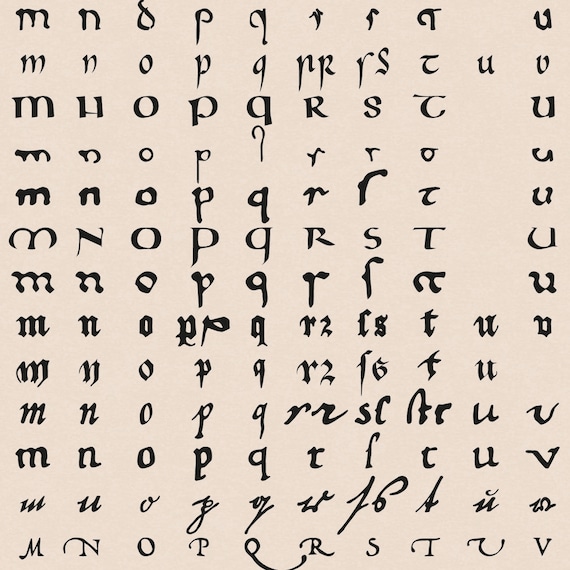 m n o p q r s t u
m n o p q r r ſ s t u v
m n o p q r s t u
m n o p q r s t u
m n o p q r ſ t u
m N O P q R S T U
m n o p q r ſ t u
m n o p p q r ꝛ ſ s t u v
m n o p q r ꝛ ſ s t u
m n o p q r r s ſ ſt t u v
m n o p q r ſ t u v
m n o p q r ſ s t u v
M N O P Q R S T U V